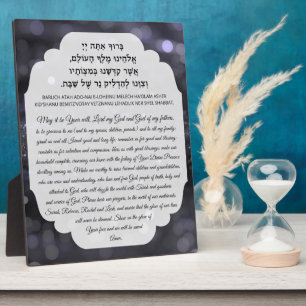 בָּרוּךְ אַתָּה יְיָ
אֱלֹהֵינוּ מֶלֶךְ הָעוֹלָם,
אֲשֶׁר קִדְּשָׁנוּ בְּמִצְוֹתָיו
וְצִוָּנוּ לְהַדְלִיק נֵר שֶׁל שַׁבָּת.
BARUCH ATAH ADO-NAI E-LOHEINU MELECH HAOLAM ASHER
KID'SHANU BEMITZVOTAV VETZIVANU LEHADLIK NER SHEL SHABBAT.
May it be Your will, Lord my God and God of my fathers,
to be gracious to me (and to my spouse, children, parents) and to all my family:
grant us and all Israel good and long life; remember us with goodness and blessing;
consider us for salvation and compassion; bless us with great blessings; make our
household complete, crowning our home with the feeling of Your Divine Presence
dwelling among us. Make me worthy to raise learned children and grandchildren,
who are wise and understanding, who love and fear God, people of truth, holy and
attached to God, who will dazzle the world with Torah and goodness
and service of God. Please hear our prayers, in the merit of our matriarchs
Sarah, Rebecca, Rachel and Leah, and ensure that the glow of our lives
will never be dimmed. Show us the glow of
Your face and save us.
Amen.